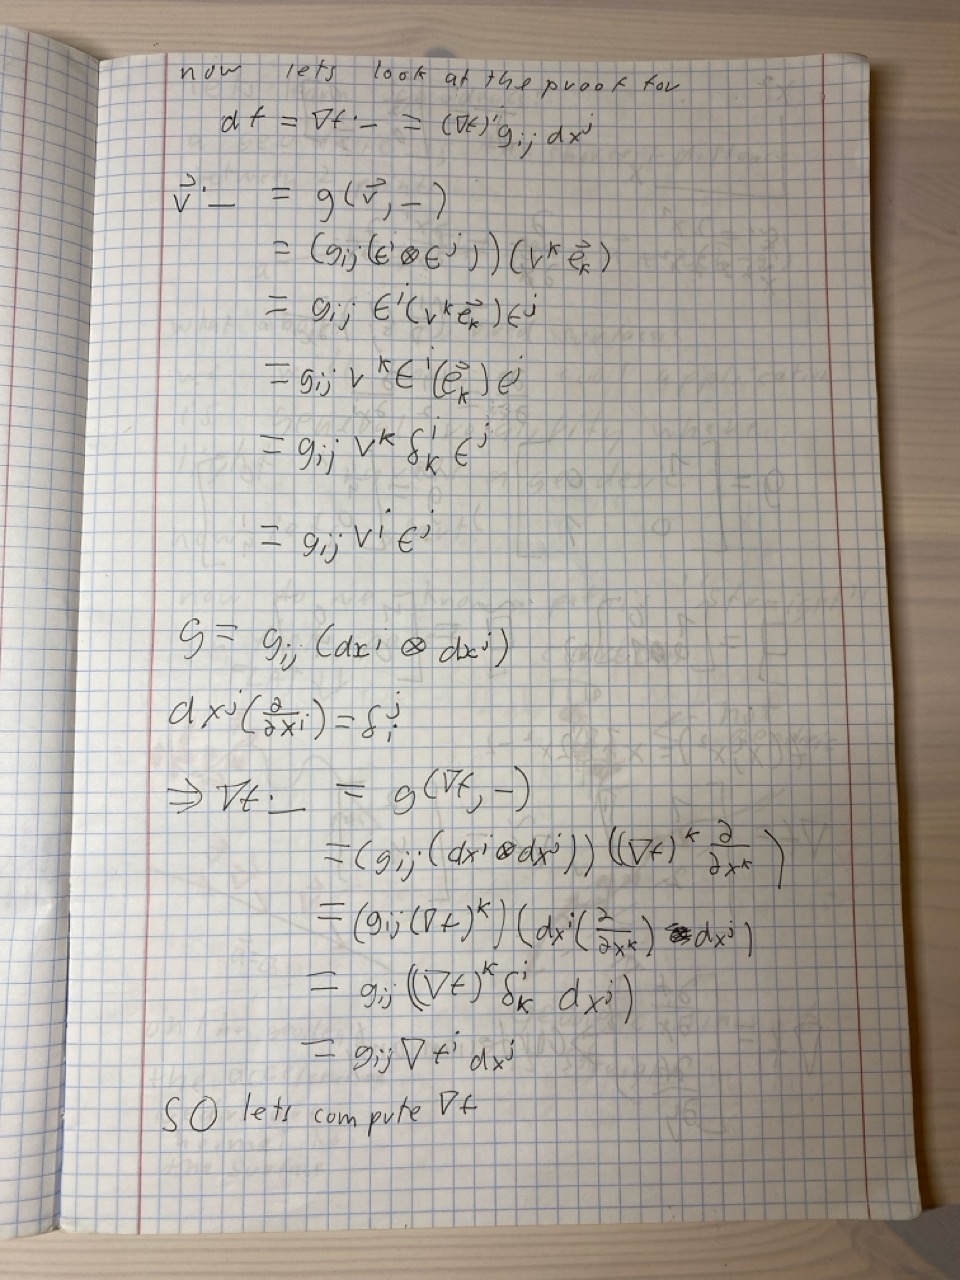 now lets look at the proof for
df = ∇f·_ = (∇f)^i g_ij dx^j
v⃗·_ = g(v⃗, _)
= (g_ij (ϵ^i ⊗ ϵ^j)) (v^k e⃗_k)
= g_ij ϵ^i(v^k e⃗_k) ϵ^j
= g_ij v^k ϵ^i(e⃗_k) ϵ^j
= g_ij v^k δ^i_k ϵ^j
= g_ij v^i ϵ^j
g = g_ij (dx^i ⊗ dx^j)
dx^j(∂/∂x^i) = δ^j_i
⇒ ∇f·_ = g(∇f, _)
= (g_ij (dx^i ⊗ dx^j)) ((∇f)^k ∂/∂x^k)
= (g_ij (∇f)^k) (dx^i(∂/∂x^k) dx^j)
= g_ij ((∇f)^k δ^i_k dx^j)
= g_ij ∇f^i dx^j
SO lets compute ∇f